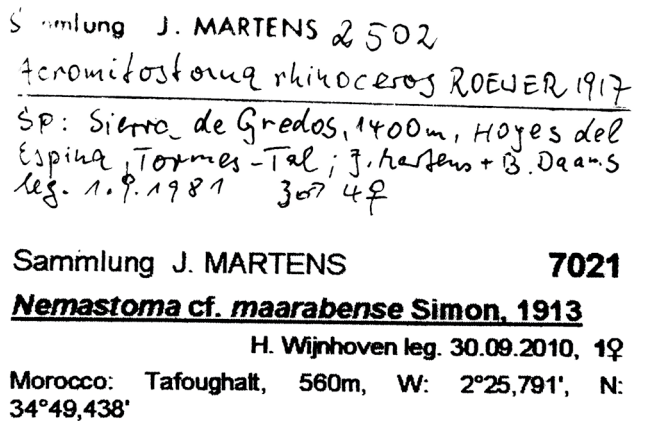 Sammlung J. MARTENS 2502
Acromitostoma rhinoceros ROEWER 1917
SP: Sierra de Gredos, 1400m, Hoyos del
Espina, Tormes-Tal; J. Martens + B. Daams
leg. 1.9.1981 3♂ 4♀
Sammlung J. MARTENS 7021
Nemastoma cf. maarabense Simon, 1913
H. Wijnhoven leg. 30.09.2010, 1♀
Morocco: Tafoughalt, 560m, W: 2°25,791', N:
34°49,438'